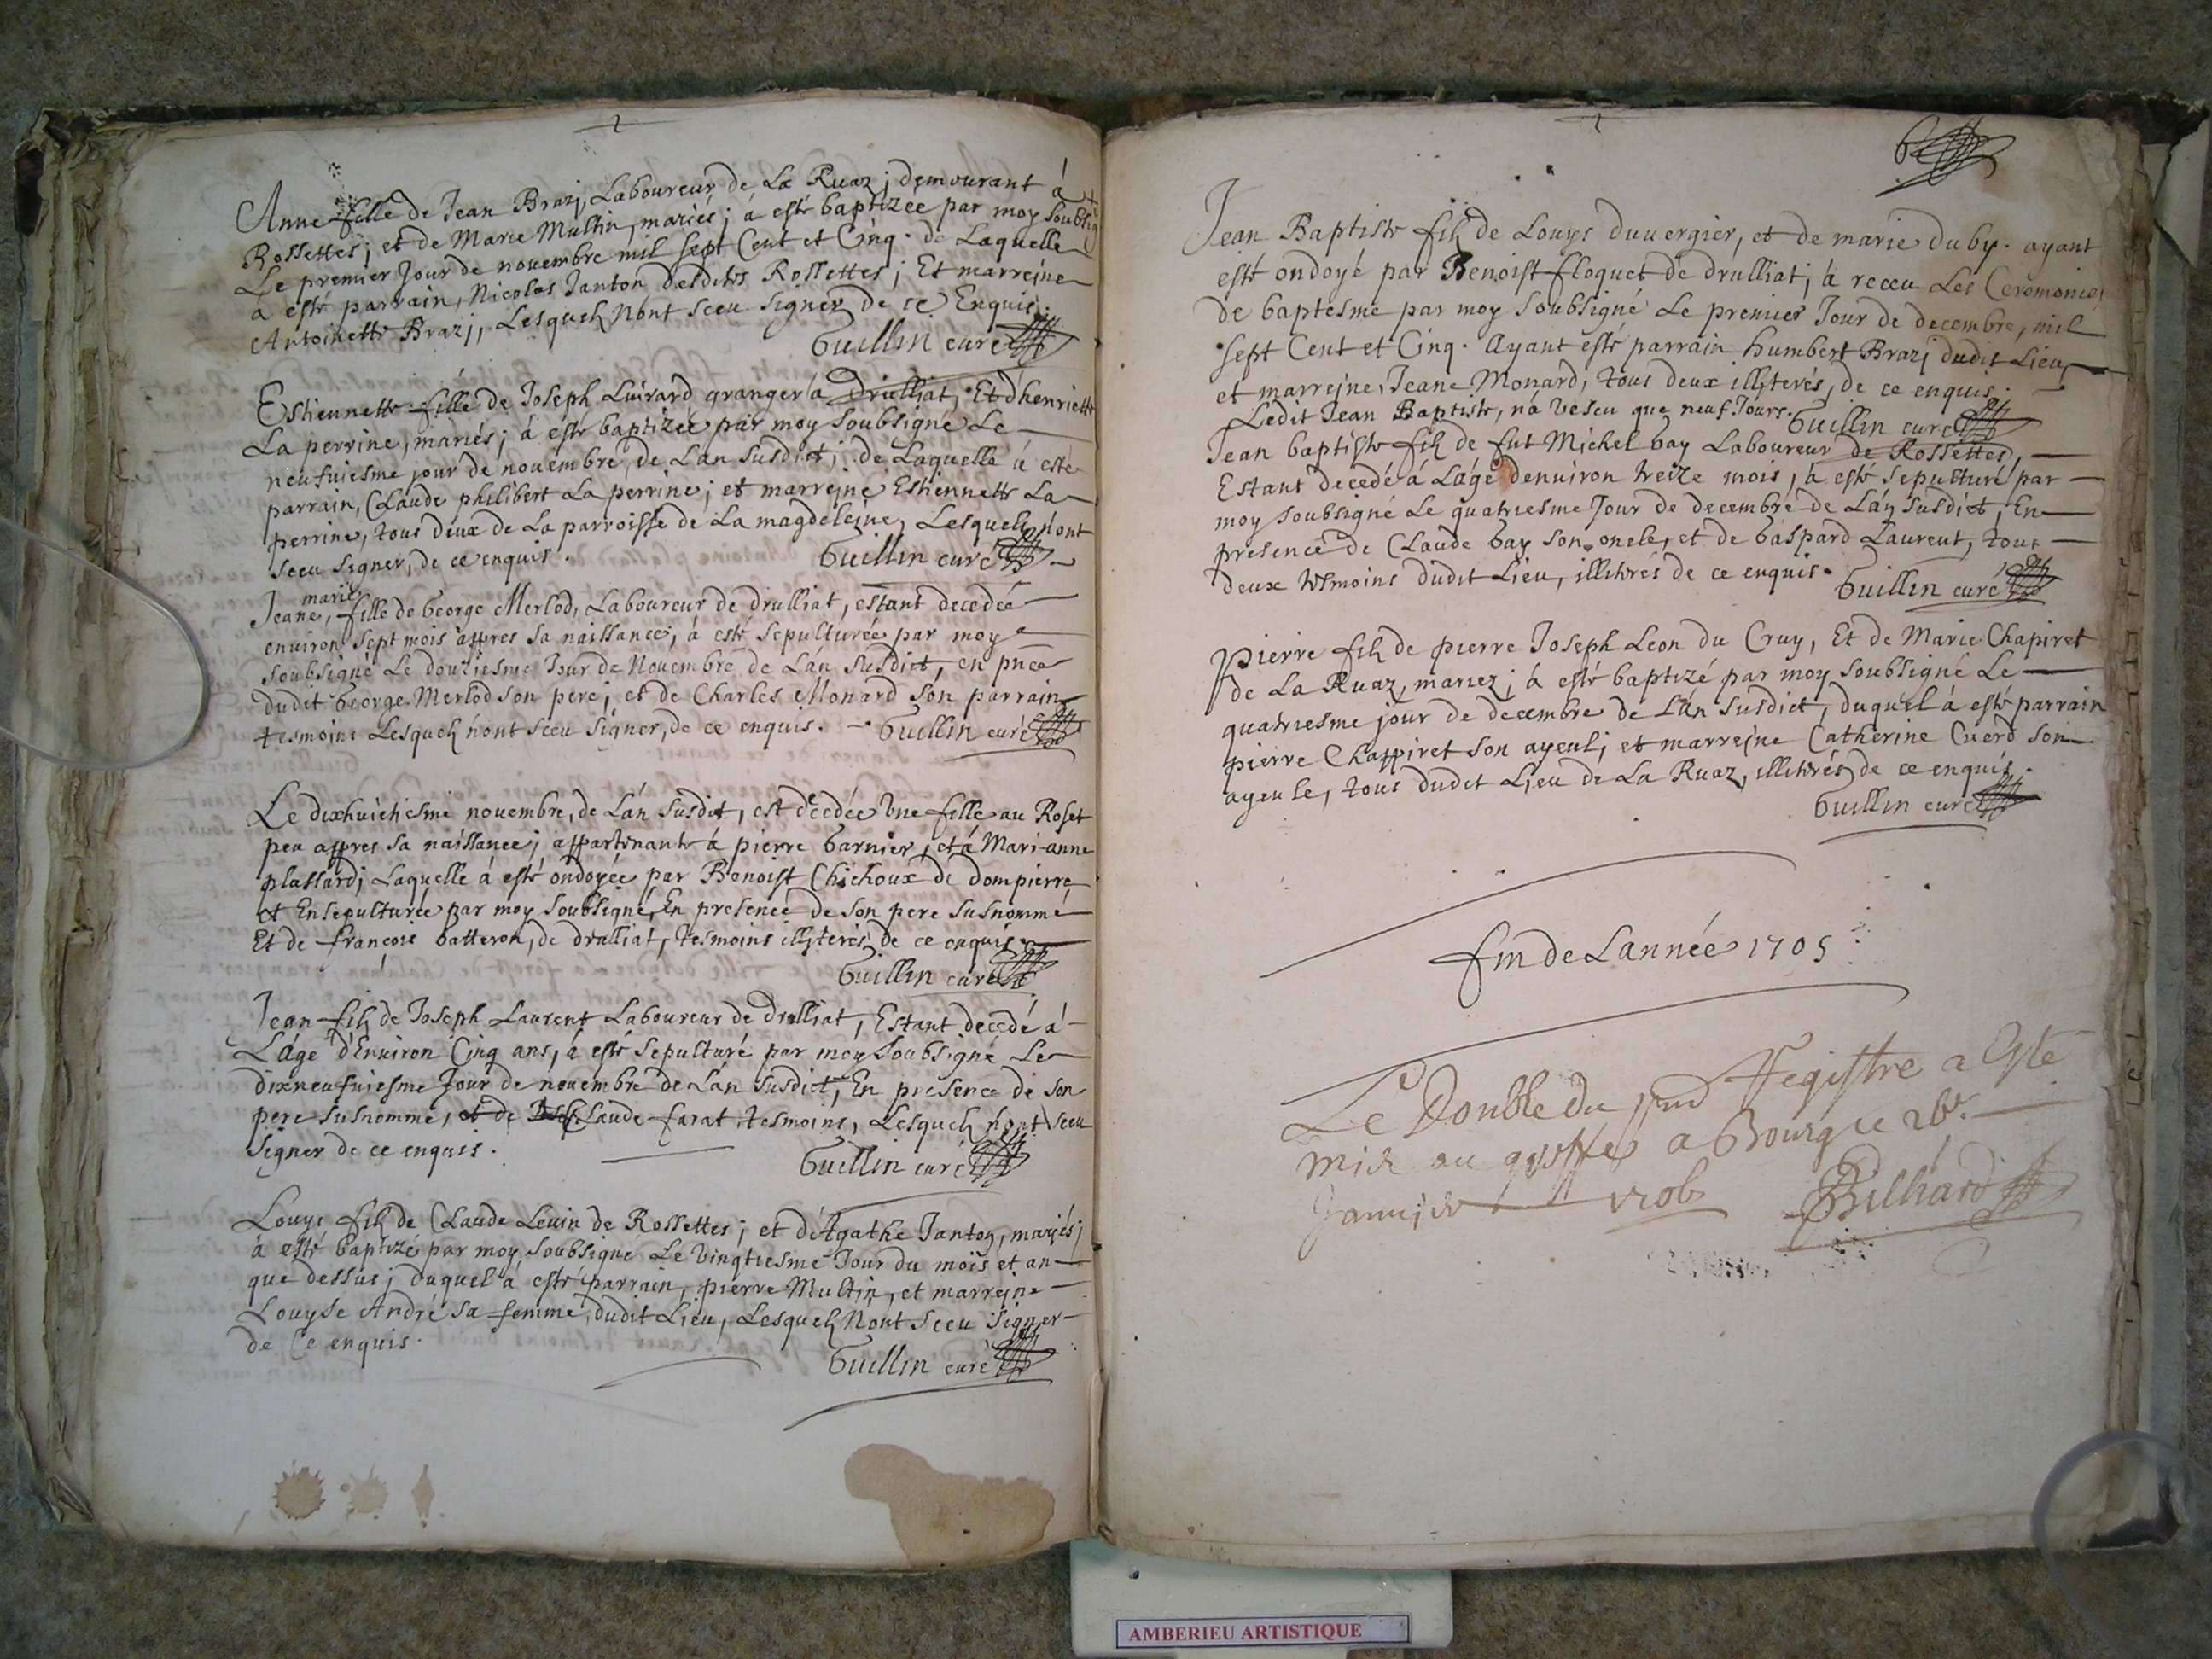 Anne fille de Jean Brazj, Laboureur de La Ruaz; demourant à
Rossettes; et de Marie Multin, mariés; à esté baptizée par moy soubsig
Le premier Jour de novembre mil sept Cent et Cinq. de Laquelle
a esté parrain, Nicolas Janton desdites Rossettes; Et marrejne
Antoinette Brazj, Lesquelz n'ont sceu signer de ce Enquis.
Guillin curé
Estiennette fille de Joseph Luirard granger à Drulliat; Et d'henriette
La perrine, mariés; à esté baptizée par moy soubsigné Le
neufuiesme jour de nouembre, de L'an susdict; de Laquelle à esté
parrain, Claude philibert La perrine; et marrejne Estiennette La
perrine, tous deux de La parroisse de La magdelejne, Lesquelz n'ont
sceu signer, de ce enquis.
Guillin curé
marie
Jeane, fille de George Merlod, Laboureur de drulliat, estant decedée
enuiron sept mois appres sa naissance, à esté sepulturée par moy
soubsigné Le douziesme Jour de Nouembre de L'an susdict, en pnce
dudit George Merlod son pere; et de Charles Monard son parrain
tesmoins Lesquelz n'ont sceu signer, de ce enquis. Guillin curé
Le dixhuictiesme nouembre, de L'an susdit, est décédée Vne fille au Roset
peu appres sa naissance; appartenante à pierre Garnier, et à Mari-anne
plassard; Laquelle à esté ondoyée par Benoist Chichoux de dompierre
et Ensepulturée par moy soubsigné, En presence de son pere susnommé
Et de françois Gatteron, de drulliat, tesmoins illjterés de ce enquis.
Guillin curé
Jean filz de Joseph Laurent Laboureur de drulliat, Estant decedé à
L'âge d'Enuiron Cinq ans, à esté sepulturé par moy soubsigné Le
dixneufuiesme Jour de nouembre de L'an susdict, En presence de son
pere susnommé, et de Claude farat tesmoins, Lesquelz n'ont sceu
signer de ce enquis.
Guillin curé
Louys filz de Claude Leuin de Rossettes; et d'Agathe Janton, mariés;
à esté baptizé par moy soubsigné Le Vingtiesme Jour du mois et an
que dessus; duquel à esté parrain, pierre Multin, et marrejne
Louyse André sa femme, dudit Lieu, Lesquelz n'ont sceu signer
de Ce enquis.
Guillin curé
Jean Baptiste filz de Louys duuergier, et de marie duby. ayant
esté ondoyé par Benoist floquet de drulliat; à receu Les Ceremonies
de baptesme par moy soubsigné Le premier Jour de decembre, mil
sept Cent et Cinq. Ayant esté parrain humbert Brazj dudit Lieu
et marrejne, Jeane Monard, tous deux illjterés, de ce enquis.
Ledit Jean Baptiste, n'à Vescu que neuf Jours. Guillin curé
Jean baptiste filz de fut Michel Gay Laboureur de Rossettes,
Estant decedé à L'âge denuiron treize mois, à esté sepulturé par
moy soubsigné Le quatriesme Jour de decembre de L'an susdict, En
presence de Claude Gay son oncle, et de Gaspard Laurent, tous
deux tesmoins dudit Lieu, illiterés de ce enquis.
Guillin curé
Pierre filz de pierre Joseph Leon du Cruy, Et de Marie Chapiret
de La Ruaz, mariez; à esté baptizé par moy soubsigné Le
quatriesme jour de decembre de L'an susdict, duquel à esté parrain
pierre Chappiret son ayeul; et marrejne Catherine Cuerd son
ayeule, tous dudit Lieu de La Ruaz, illiterés de ce enquis.
Guillin curé
fin de L'année 1705
Le Double du pnd Registre a Esté
mis au greffe a Bourg ce 26e
Januier 1706 Bulhard
AMBERIEU ARTISTIQUE